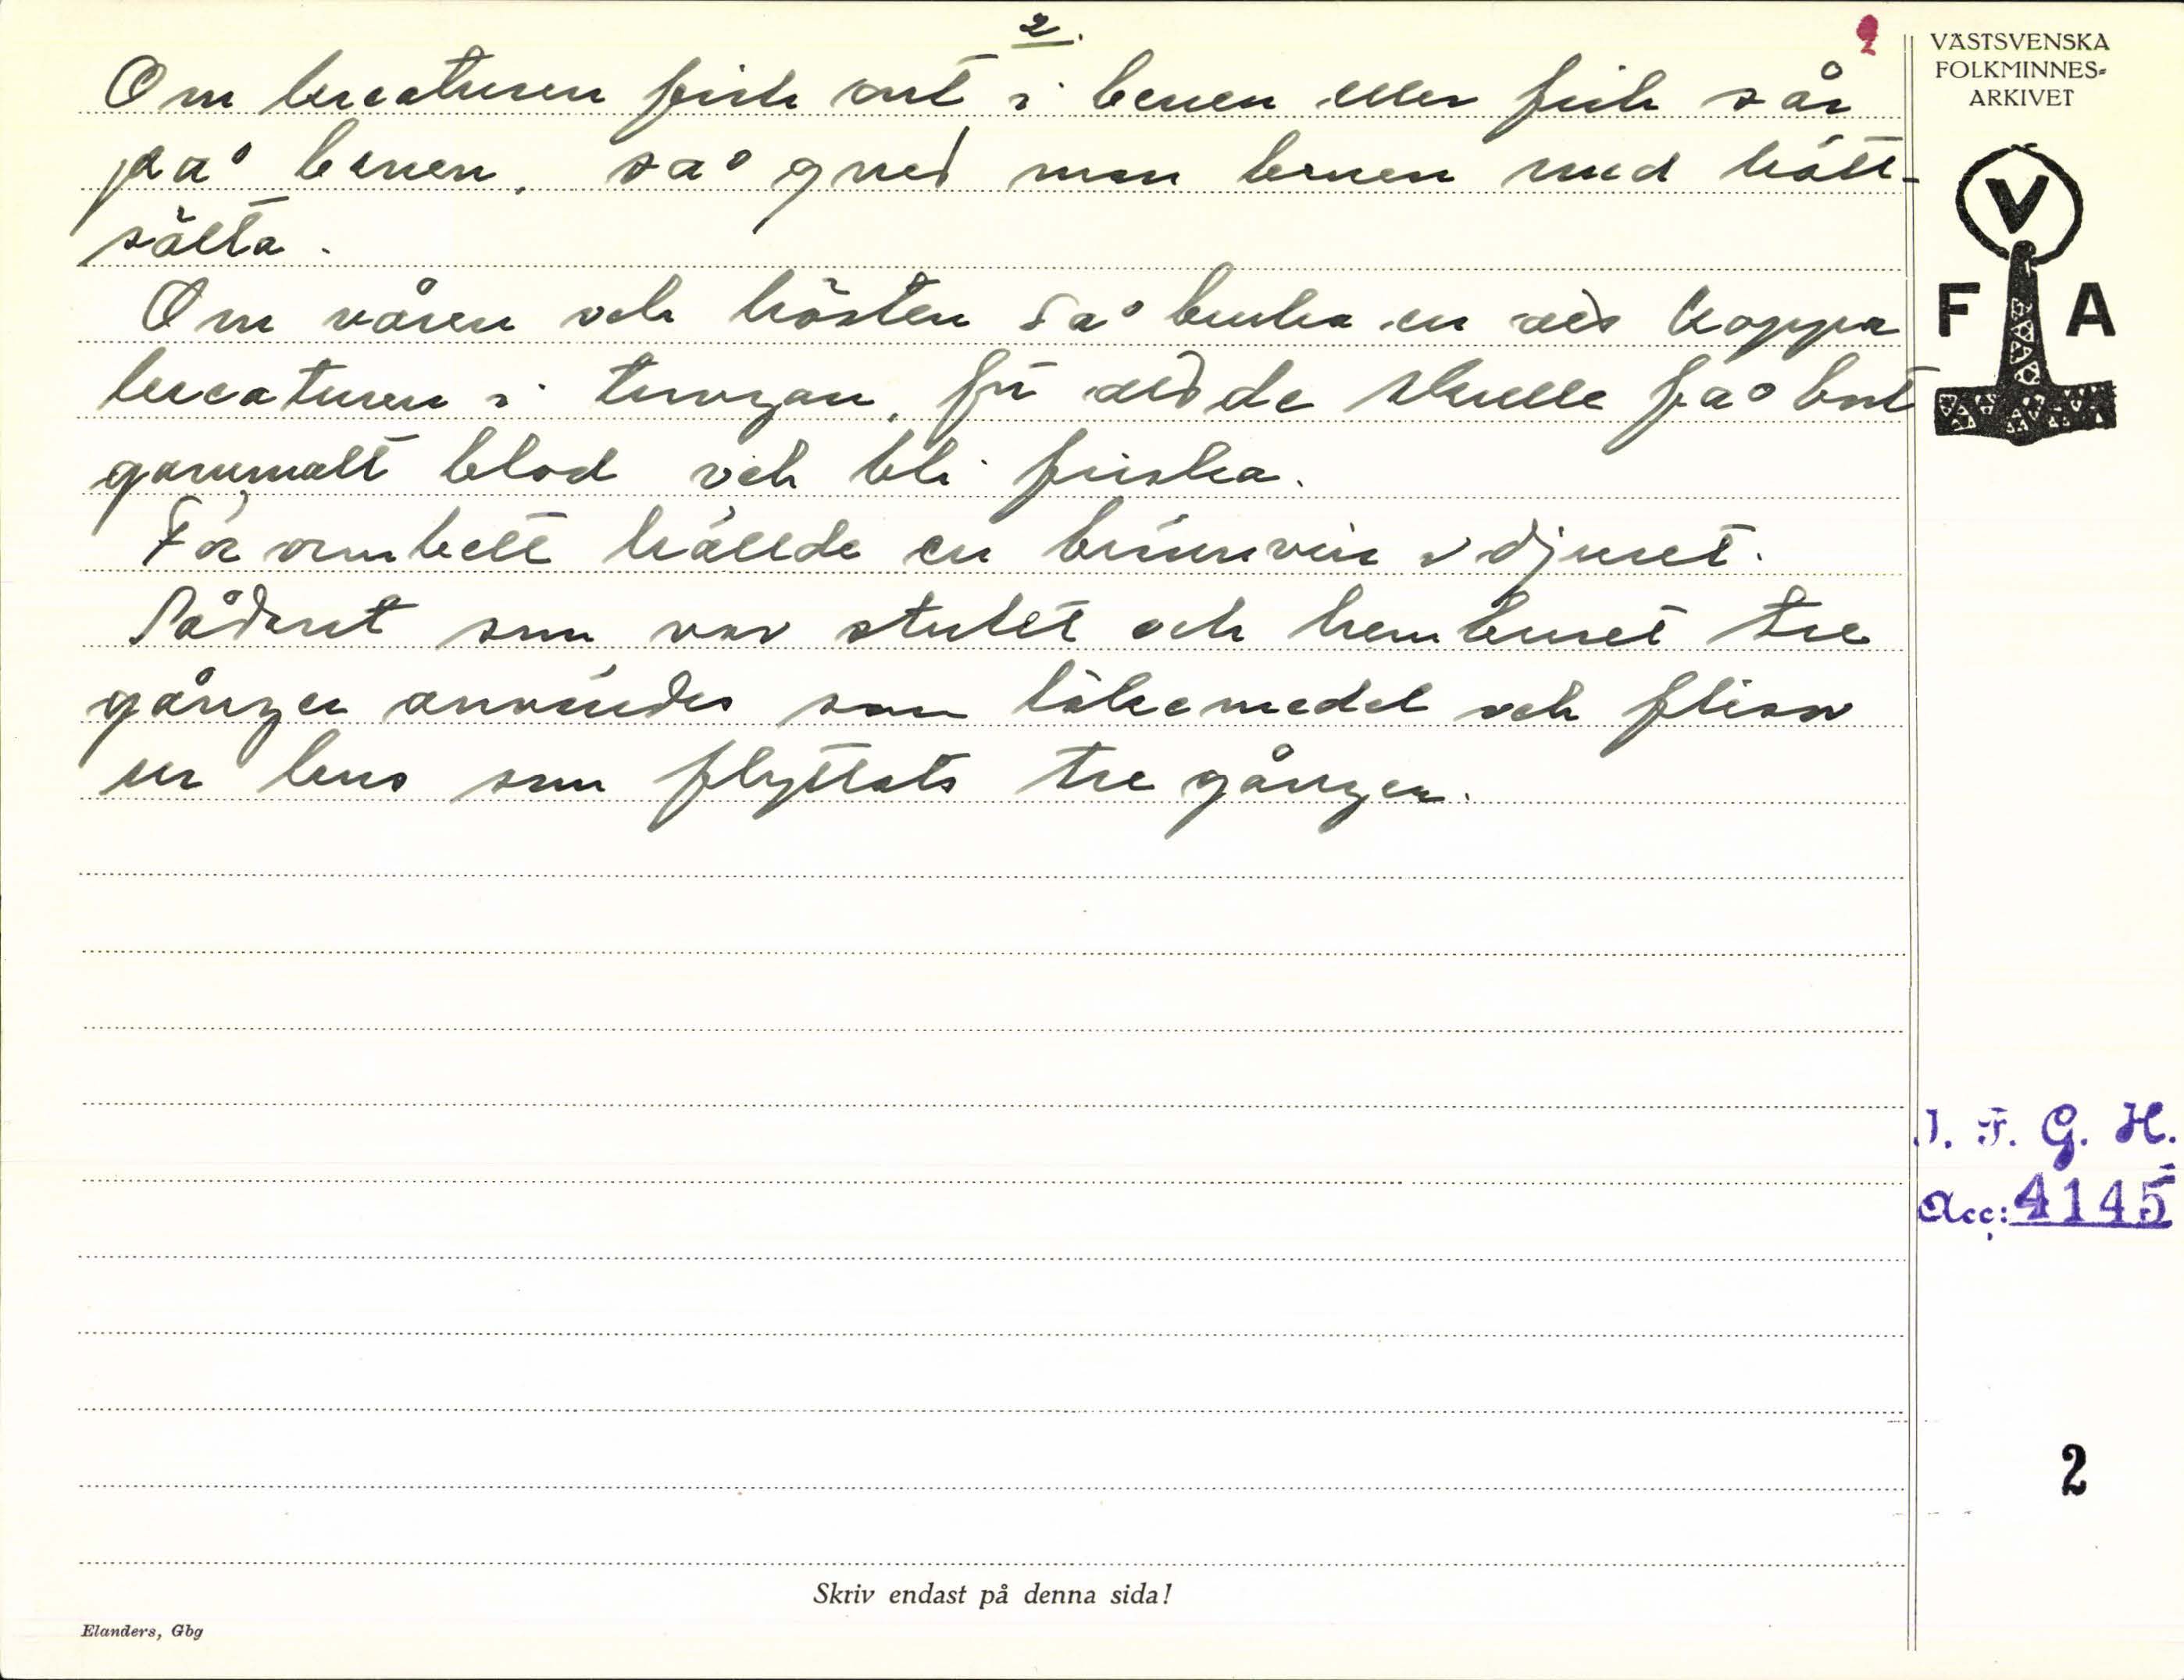 2.
2
Om kreaturen fick ont i benen eller fick sår
på benen, så gned man benen med kött-
sälta.
Om våren och hösten så bruka en åd koppa
kreaturen i tungan, för ad de skulle få bort
gammalt blod och bli friska.
För ormbett hällde en brännvin i djuret.
Sådant som var stulet och hemburet tre
gånger användes som läkemedel och flisor
ur hus som flyttats tre gånger.
VÄSTSVENSKA
FOLKMINNES-
ARKIVET
V
F A
I. F. G. H.
Acc: 4145
2
Skriv endast på denna sida!
Elanders, Gbg